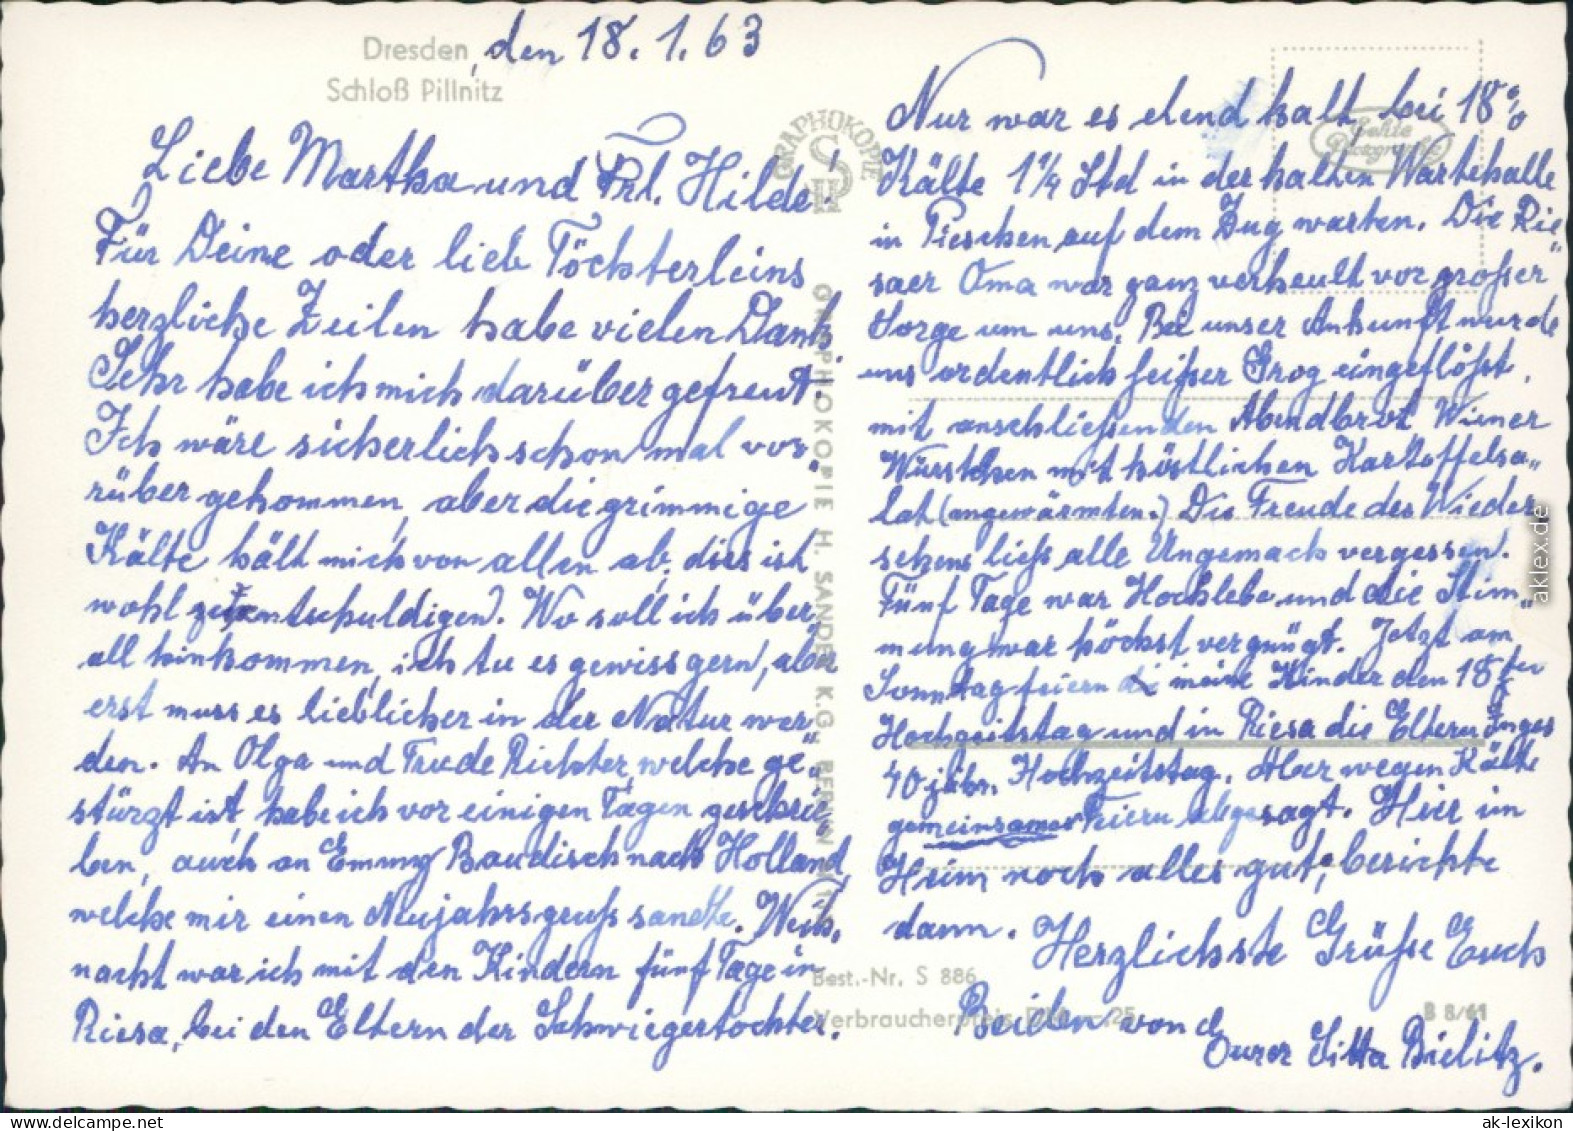 Dresden, den 18.1.63
Schloß Pillnitz
Liebe Martha und Frl. Hilde!
Für Deine oder lieb Töchterleins
herzliche Zeilen habe vielen Dank
Sehr habe ich mich darüber gefreut.
Ich wäre sicherlich schon mal vor„
rüber gekommen, aber die grimmige
Kälte hält mich von allen ab, dies ist
wohl zu entschuldigen. Wo soll ich über„
all hinkommen, ich tu es gewiss gern, aber
erst muss es lieblicher in der Natur wer„
den. An Olga und Trude Richter, welche ge„
stürzt ist, habe ich vor einigen Tagen geschrie„
ben, auch an Emmy Baudisch nach Holland,
welche mir einen Neujahrsgruß sandte. Weih„
nacht war ich mit den Kindern fünf Tage in
Riesa, bei den Eltern der Schwiegertochter.
Nur war es elend kalt bei 18%
Kälte 1¼ Std in der kalten Wartehalle
in Pieschen auf dem Zug warten. Die Rie„
saer Oma war ganz verheult vor großer
Sorge um uns. Bei unser Ankunft wurde
uns ordentlich heißer Grog eingeflößt,
mit anschließenden Abendbrot Wiener
Würstchen mit köstlichen Kartoffelsa„
lat (angewärmten.) Die Freude des Wieder
sehens ließ alle Ungemach vergessen.
Fünf Tage war Hochlebe und die Stim„
mung war höchst vergnügt. Jetzt am
Sonntag feiern meine Kinder den 18ten
Hochzeitstag und in Riesa die Eltern Inges
40 jähr. Hochzeitstag. Aber wegen Kälte
gemeinsames Feiern abgesagt. Hier im
Heim noch alles gut, berichte
dann. Herzlichste Grüße Euch
Beiden von
Eurer Sitta Bielitz.
GRAPHOKOPIE
Echte
Photographie
GRAPHOKOPIE H. SANDER K.G. BERLIN
Best.-Nr. S 886
Verbraucherpreis DM -.25
B 8/61
aklex.de
www.delcampe.net
ak-lexikon